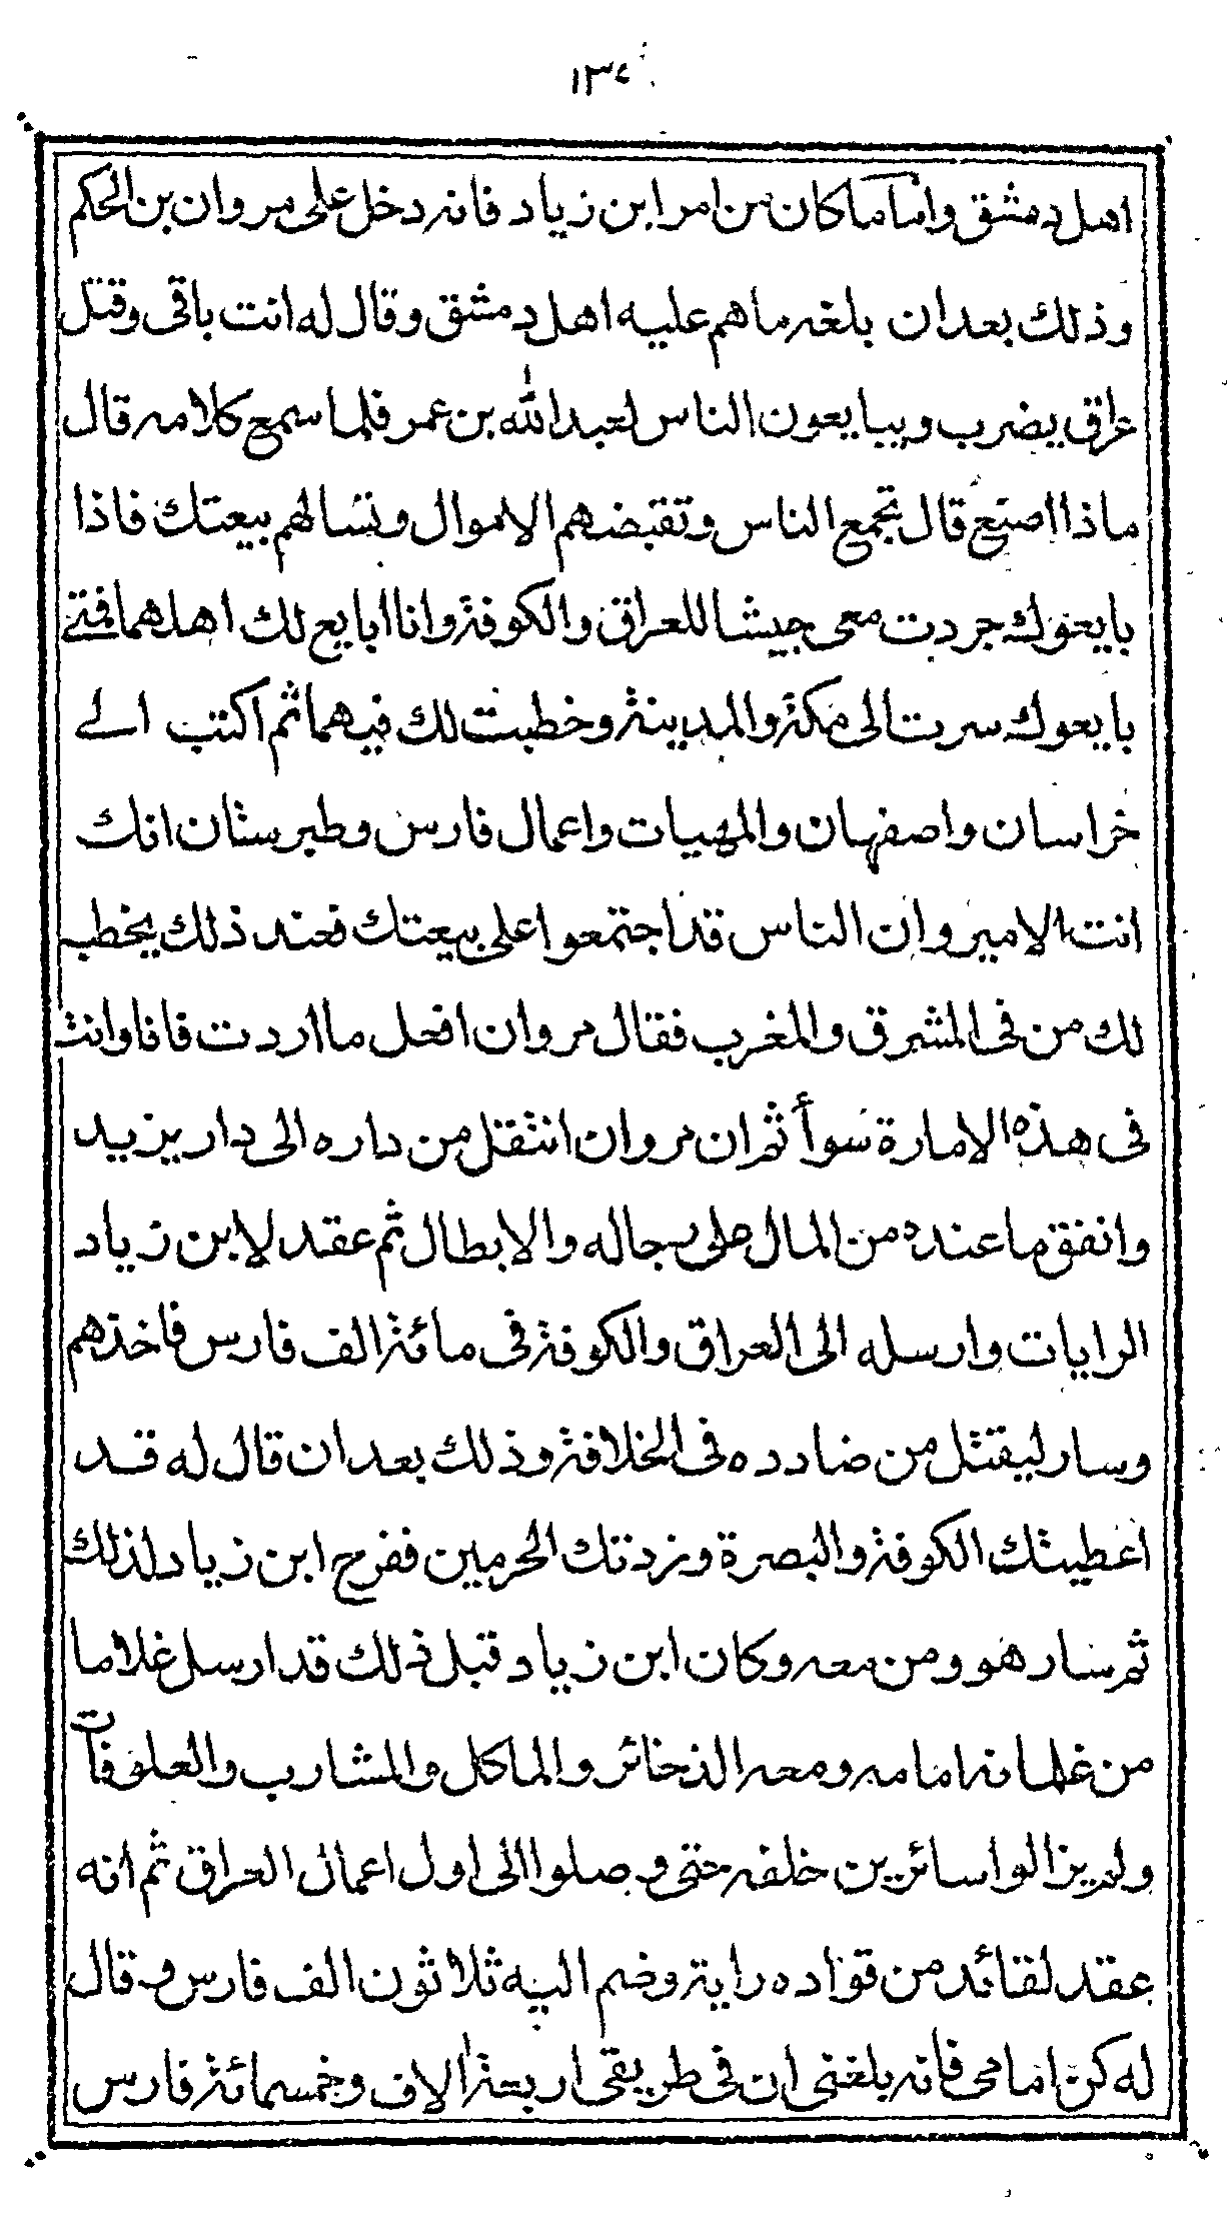 ١٣٤
اهل دمشق واما ما كان من امر ابن زياد فانه دخل على مروان بن الحكم
وذلك بعد ان بلغه ما هم عليه اهل دمشق وقال له انت باقى وقتل
عراق يضرب ويبايعون الناس لعبد الله بن عمر فلما سمع كلامه قال
ماذا اصنع قال تجمع الناس وتقبضهم الاموال وتسالهم بيعتك فاذا
بايعوك جردت معى جيشا للعراق والكوفة وانا ابايع لك اهلهما فمتى
بايعوك سرت الى مكة والمدينة وخطبت لك فيهما ثم اكتب الى
خراسان واصفهان والمهيات واعمال فارس وطبرستان انك
انت الامير وان الناس قد اجتمعوا على بيعتك فعند ذلك يخطب
لك من فى المشرق والمغرب فقال مروان افعل ما اردت فانا وانت
فى هذه الامارة سوأ ثم ان مروان انتقل من داره الى دار يزيد
وانفق ما عنده من المال على رجاله والابطال ثم عقد لابن زياد
الرايات وارسله الى العراق والكوفة فى مائة الف فارس فاخذهم
وسار ليقتل من ضادده فى الخلافة وذلك بعد ان قال له قد
اعطيتك الكوفة والبصرة وزدتك الحرمين ففرح ابن زياد لذلك
ثم سار هو ومن معه وكان ابن زياد قبل ذلك قد ارسل غلاما
من غلمانه امامه ومعه الذخائر والماكل والمشارب والعلوفات
ولم يزالوا سائرين خلفه حتى وصلوا الى اول اعمال العراق ثم انه
عقد لقائد من قواده راية وضم اليه ثلاثون الف فارس وقال
له كن امامى فانه بلغنى ان فى طريقى اربعة الاف وخمسمائة فارس